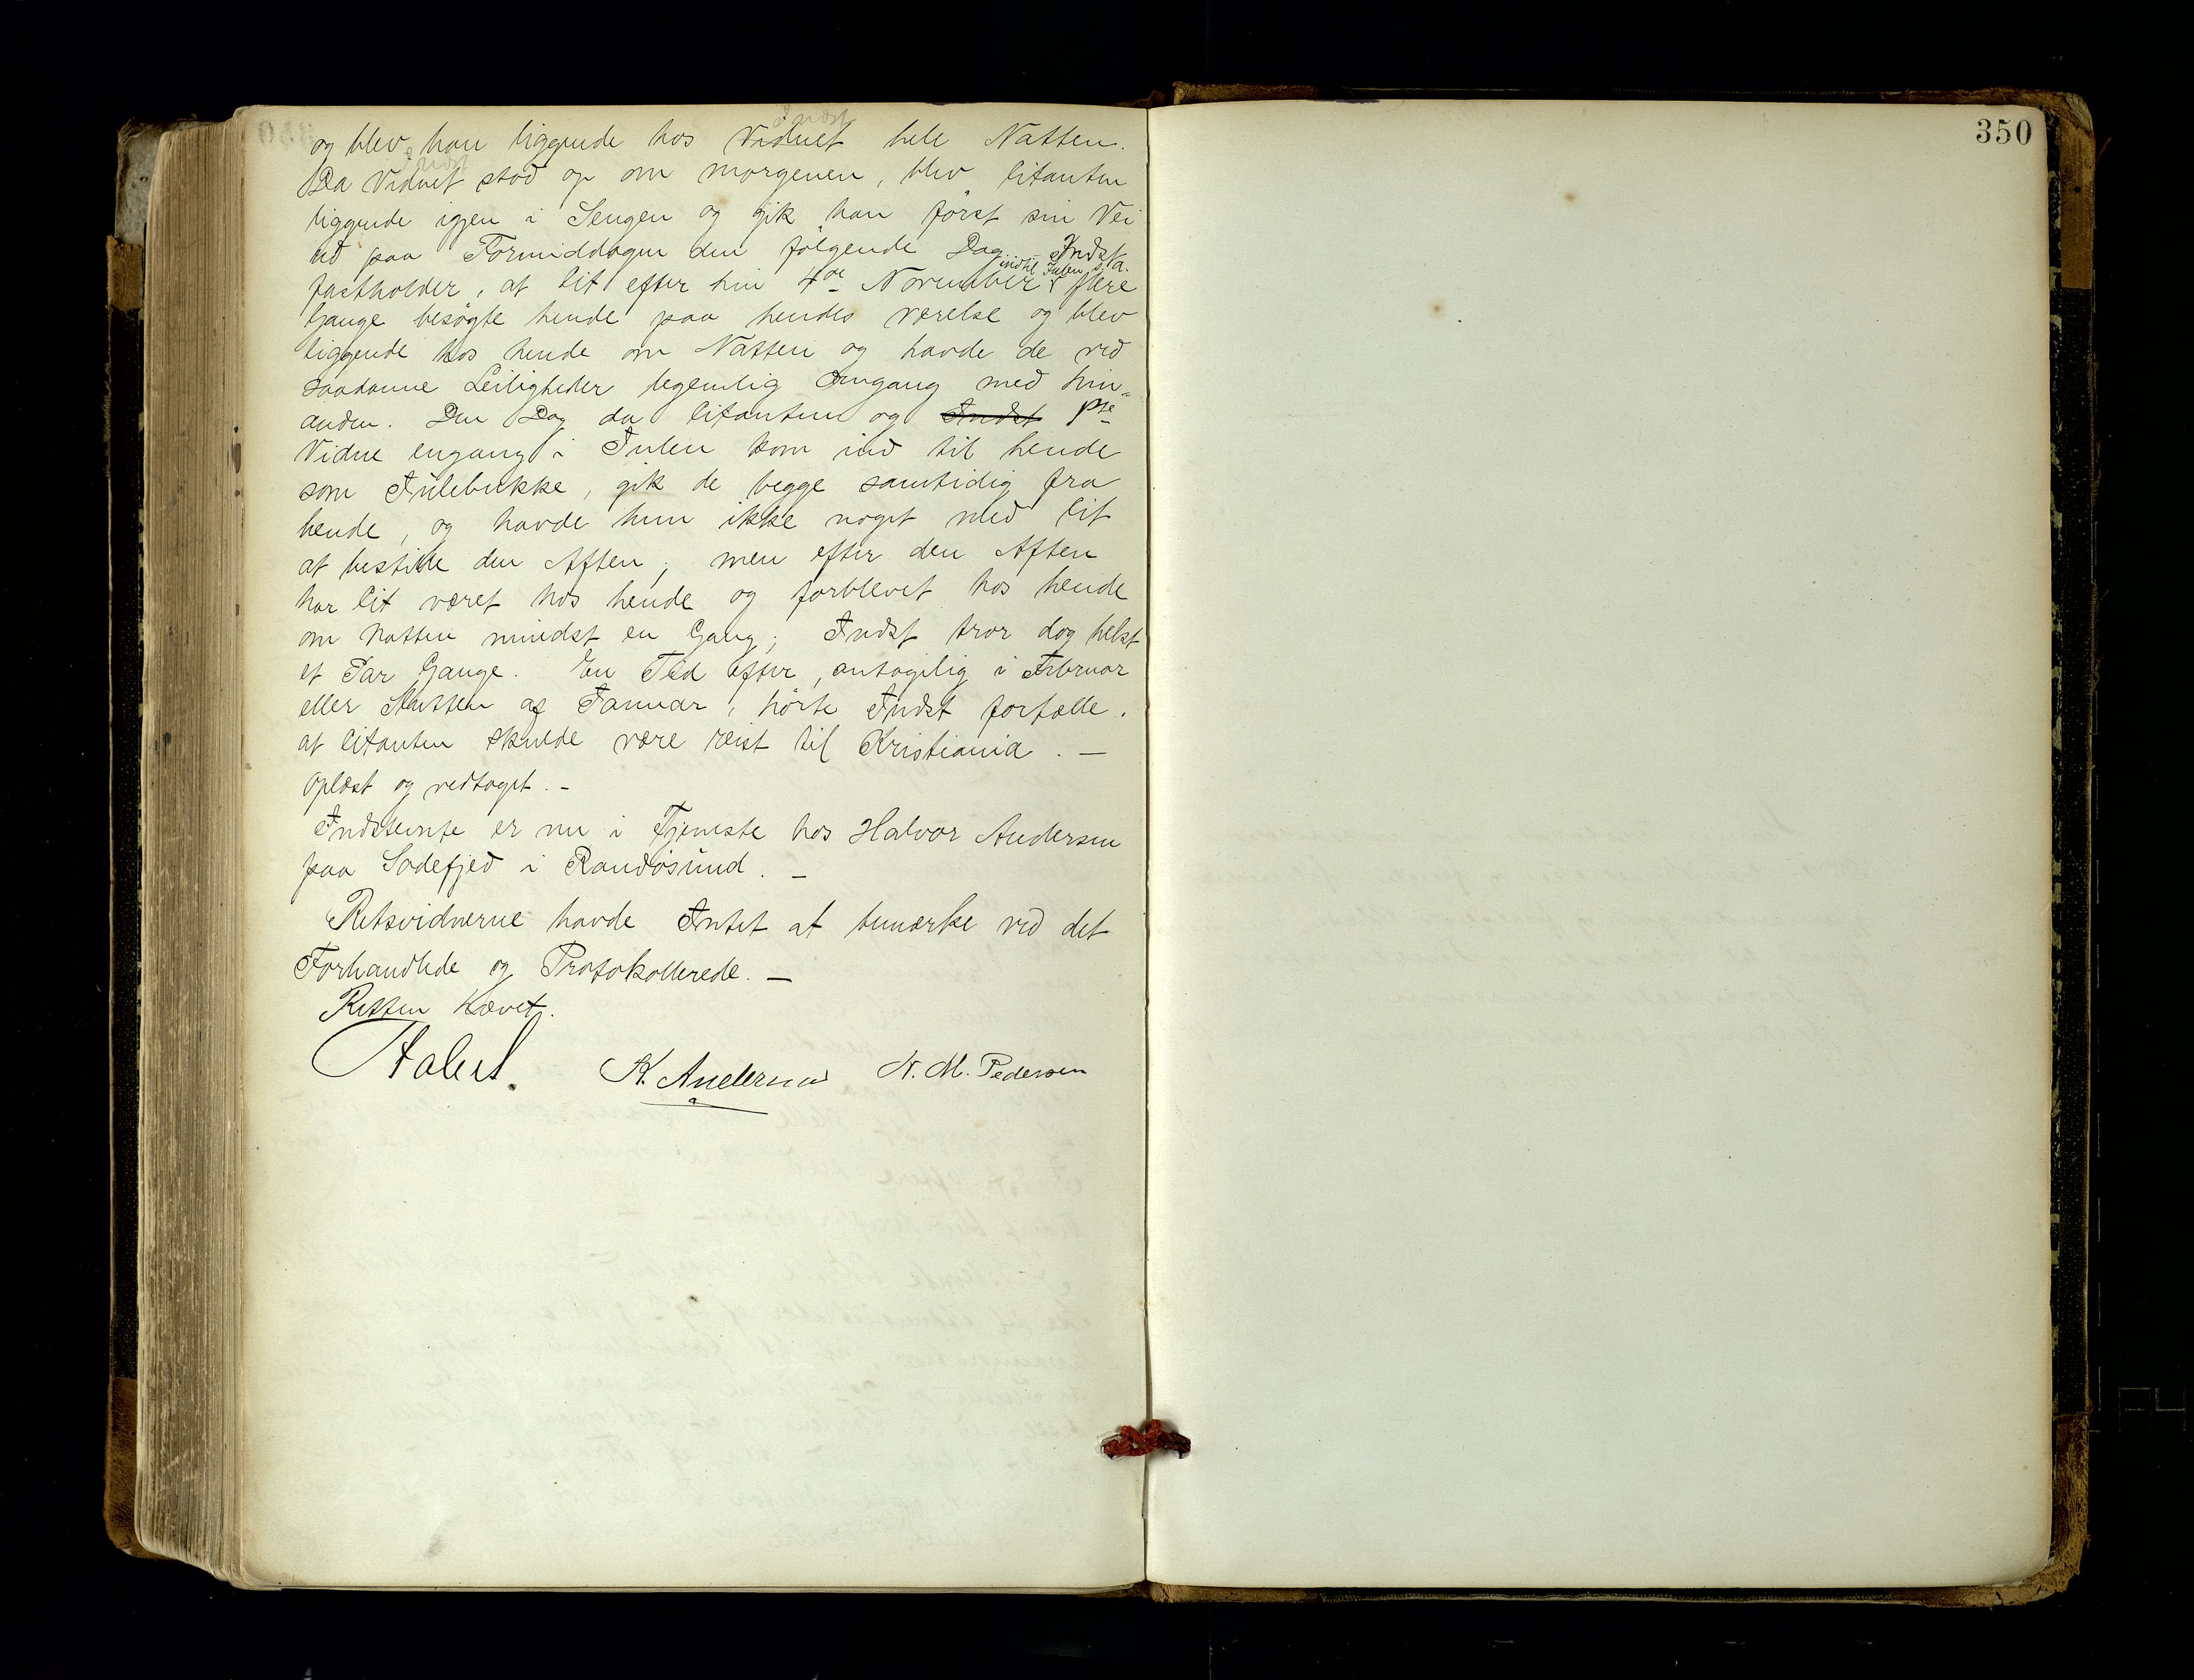 350
Indst
og blev han liggende hos Vidnet hele Natten.
Indst
Da Vidnet stod op om morgenen, blev Citanten
liggende igjen i Sengen og gik han først sin Vei
ud paa Formiddagen den følgende Dag. Indst.
indtil Julen
fastholder, at Cit efter hin 4de November flere
Gange besøgte hende paa hendes værelse og blev
liggende hos hende om Natten og havde de ved
saadanne Leiligheder legemlig Omgang med hin-
anden. Den Dag da Citanten og Indst 1ste
Vidne engang i Julen kom ind til hende
som Julebukke, gik de begge samtidig fra
hende, og havde hun ikke noget med Cit
at bestille den Aften; men efter den Aften
har Cit været hos hende og forblevet hos hende
om Natten mindst en Gang; Indst tror dog helst
et Par Gange. En Tid efter, antagelig i Februar
eller Slutten af Januar, hørte Indst fortælle,
at Citanten skulde være reist til Kristiania. —
Oplæst og vedtaget. -
Indstevnte er nu i Tjeneste hos Halvor Andersen
paa Sodefjed i Randøsund. -
Retsvidnerne havde Intet at bemærke ved det
Forhandlede og Protokollerede. —
Retten hævet.
K. Andersen N. M. Pedersen